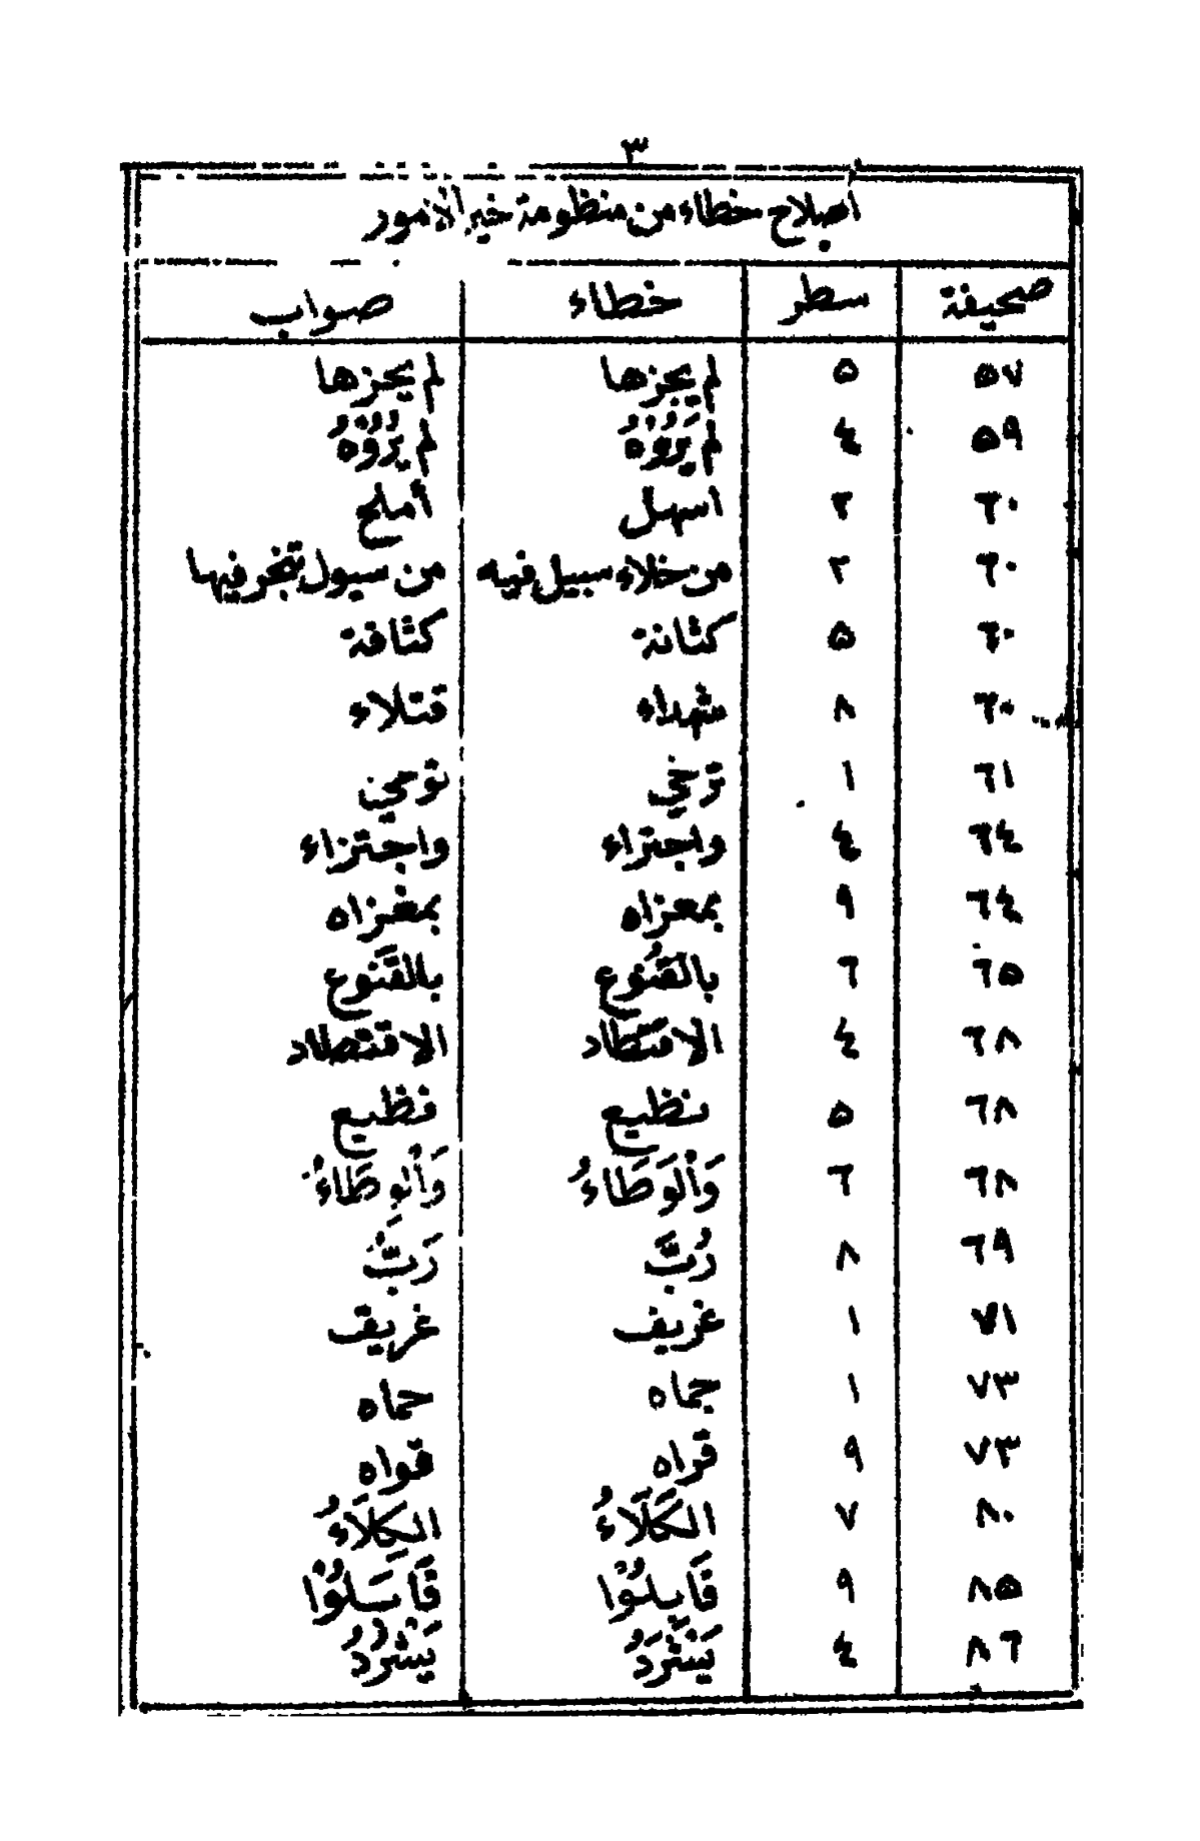 ٣
اصلاح خطاء من منظومة خير الامور
صحيفة سطر خطاء صواب
٥٧ ٥ لم يجزها لم يحزها
٥٩ ٤ لم يَرُوْهُ لم يرُوْهُ
٦٠ ٢ اسهل أملح
٦٠ ٢ من خلاء سبيل فيه من سيول تجر فيها
٦٠ ٥ كثانة كثافة
٦٠ ٨ شهداء قتلاء
٦١ ١ ترخي توحي
٦٤ ٤ واجتراء واجتزاء
٦٤ ٩ بمعزاه بمغزاه
٦٥ ٦ بالقُنوع بالقَنوع
٦٨ ٤ الاقتطاد الاقتصاد
٦٨ ٥ نظيع فظيع
٦٨ ٦ وَألوَطَاءُ وَأنوطَاءُ
٦٩ ٨ رُبَّ رَبَّ
٧١ ١ غريف غريق
٧٣ ١ جماه حماه
٧٣ ٩ قراه قواه
٨٠ ٧ الكَلَاءُ الكلَاءُ
٨٥ ٩ قَابِلُوْا قَاسَلُوْا
٨٦ ٤ يَنْثَرَدُ يَشْرُدُ